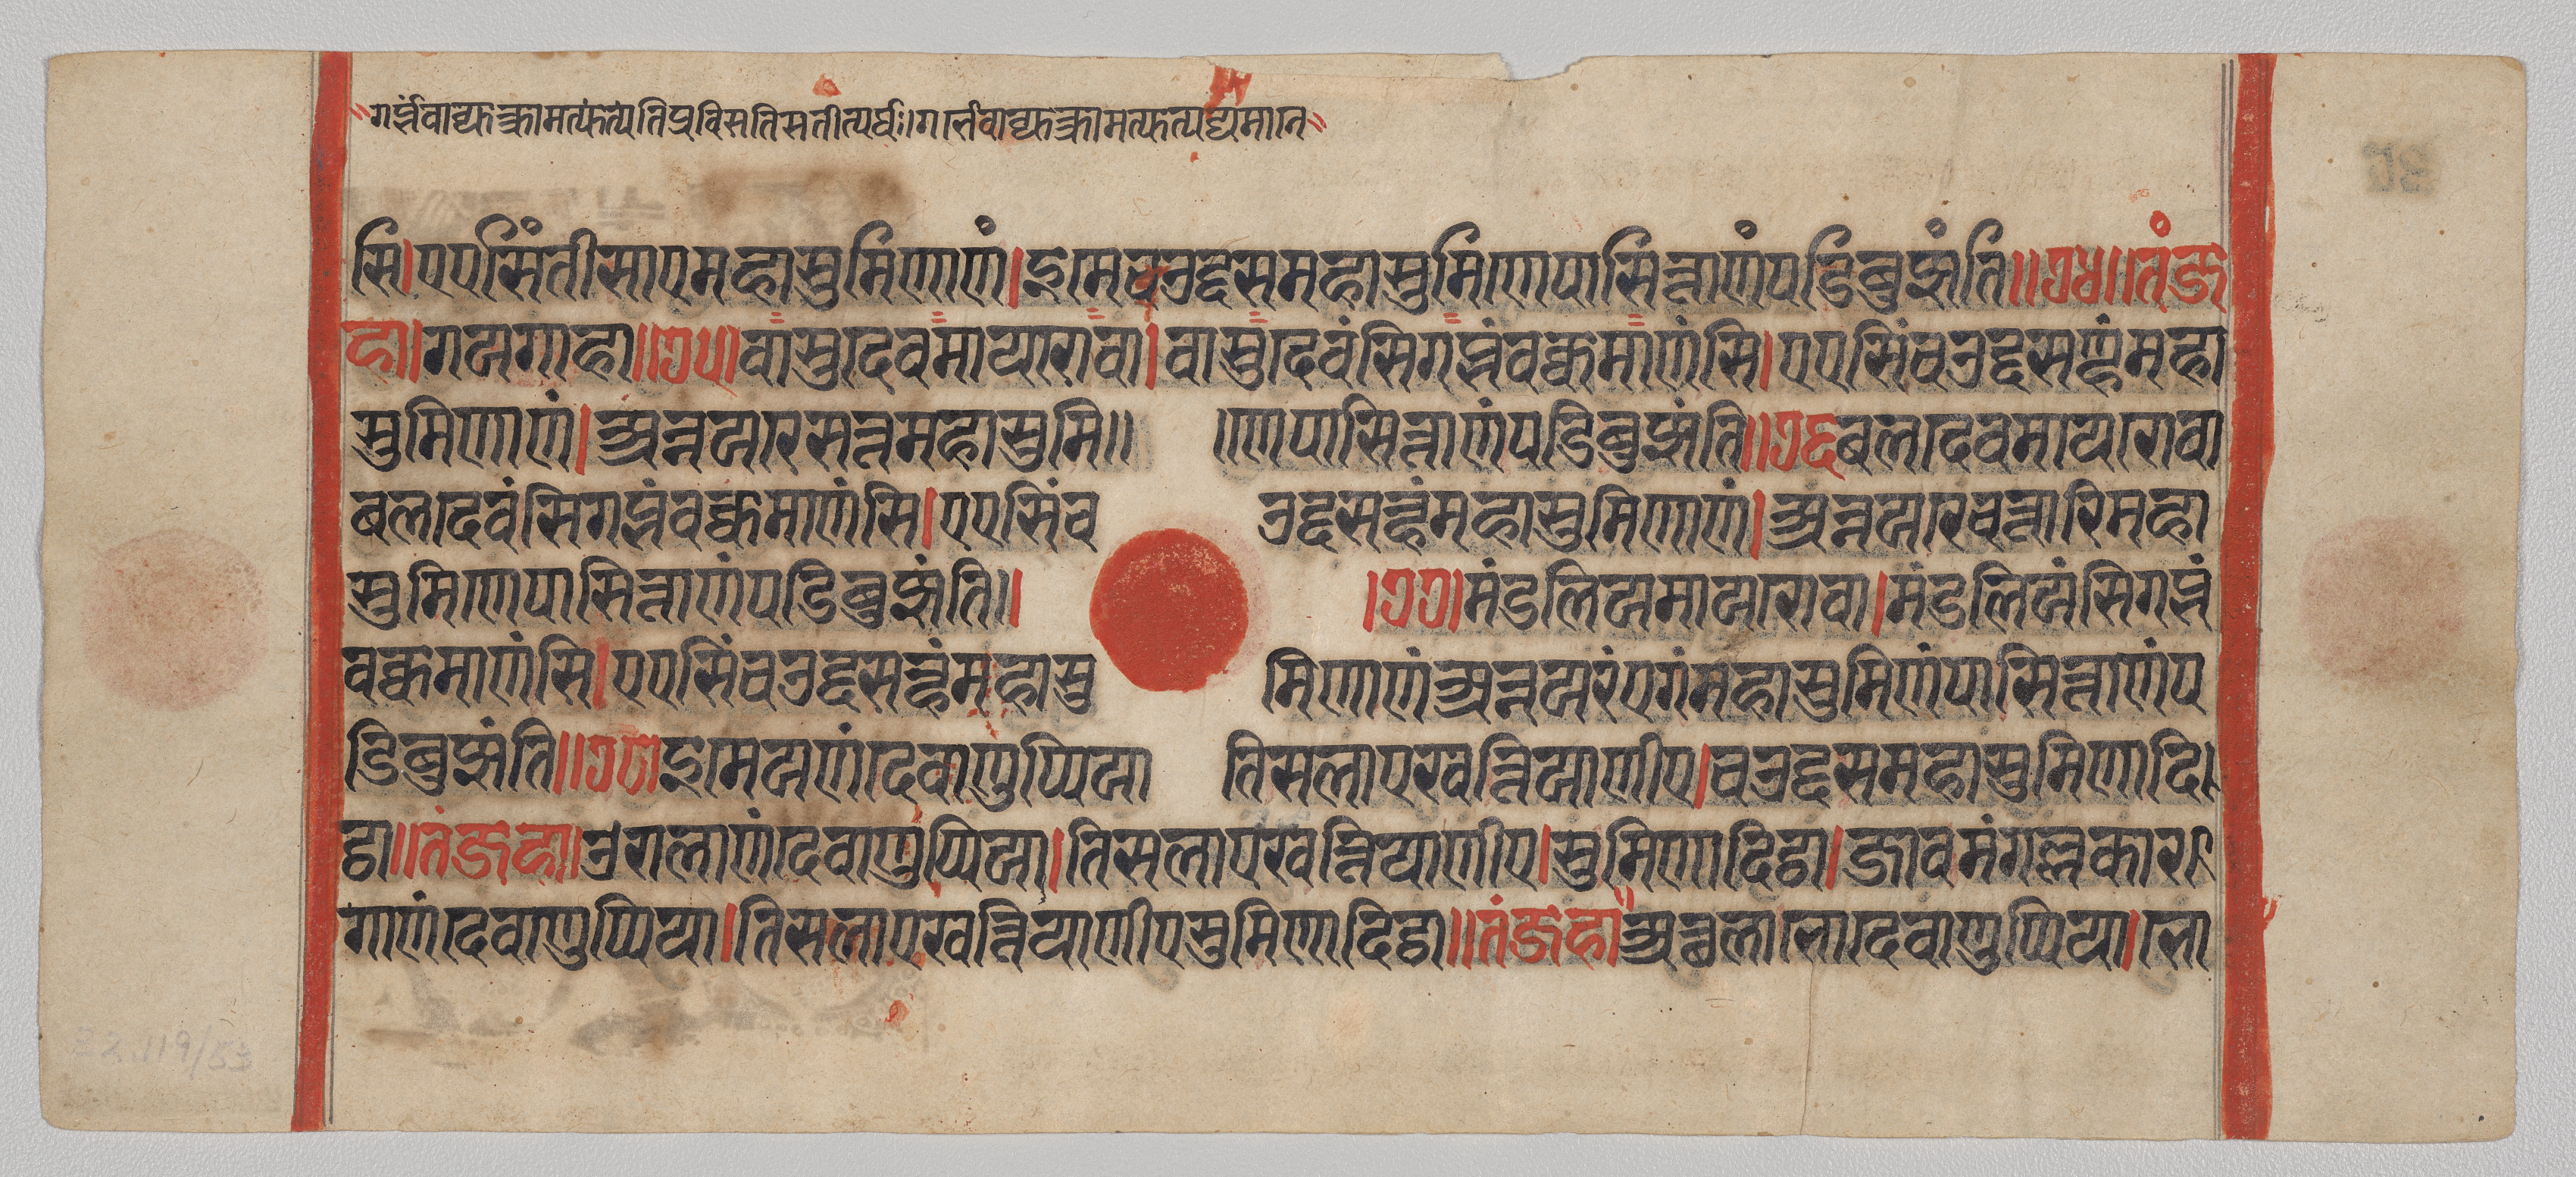 ॥गर्ब्भंवाव्युत्क्रामत्युत्पत्यतिप्रविसतिसतीत्यर्थः॥गर्भेवाव्युत्क्रामत्युत्पद्यमाने॥
सि।एएसिंतीसाएमहासुमिणाणं।इमेचउद्दसमहासुमिणेपासित्ताणंपडिबुझंति॥७४॥तंज
हा।गयगाहा॥७५।वासुदेवमायरोवा।वासुदेवंसिगब्भंवक्कमाणंसि।एएसिंचउद्दसण्हंमहा
सुमिणाणं।अन्नयरेसत्तमहासुमि॥ ॥णेपासित्ताणंपडिबुझंति॥७६बलदेवमायरोवा
बलदेवंसिगब्भंवक्कमाणंसि।एएसिंच उद्दसन्हंमहासुमिणाणं।अन्नयरेचत्तारिमहा
सुमिणेपासित्ताणंपडिबुझंति॥ ।७७।मंडलियमायारोवा।मंडलियंसिगब्भं
वक्कमाणंसि।एएसिंचउद्दसन्हंमहासु मिणाणंअन्नयरंएगंमहासुमिणंपासित्ताणंप
डिबुझंति॥७८इमेयणंदेवाणुप्पिया तिसलाएखत्तियाणीए।चउद्दसमहासुमिणादि
ट्ठा॥तंजहा।उरालाणंदेवाणुप्पिया।तिसलाएखत्तियाणीए।सुमिणादिट्ठा।जावमंगल्लकार
गाणंदेवाणुप्पिया।तिसलाएखत्तियाणीएसुमिणादिट्ठा॥तंजहा॥अत्थलाभोदेवाणुप्पिया।भो